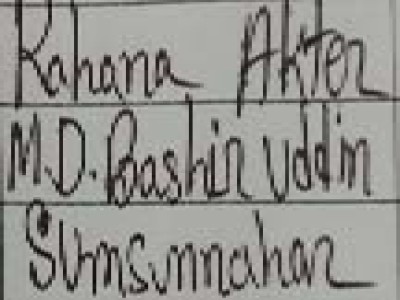 Rahana Akter
M.D. Baashir Uddin
Sumsunnahar